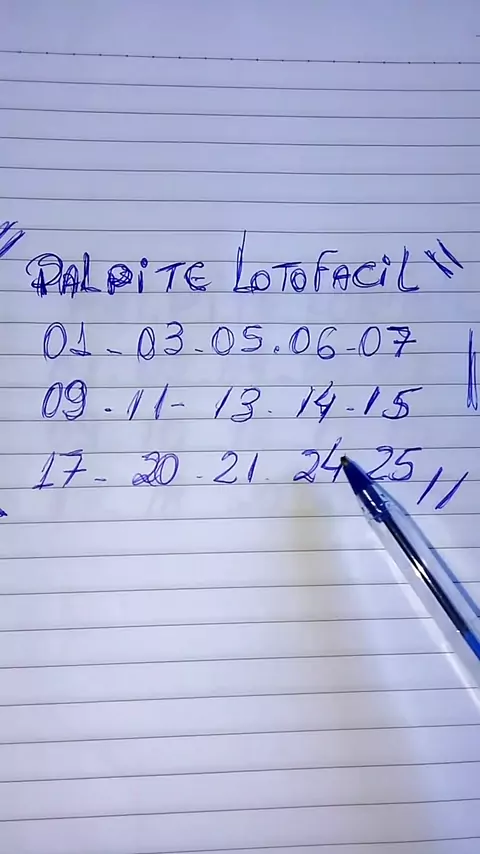 "PALPITE LOTOFACIL"
01 - 03 - 05 . 06 - 07
09 - 11 - 13 . 14 - 15
17 - 20 - 21 . 24 25 //